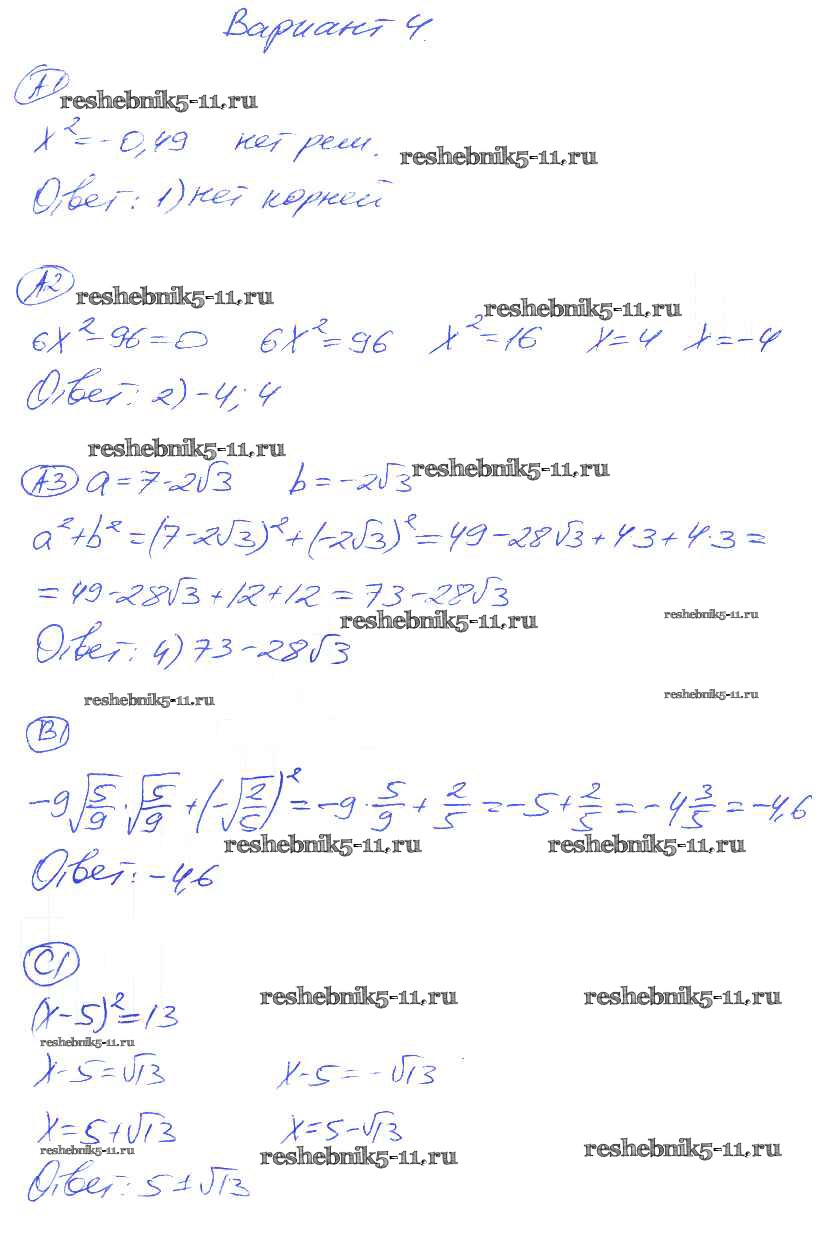 Вариант 4
А1
reshebnik5-11.ru
x² = -0,49 нет реш.
reshebnik5-11.ru
Ответ: 1) нет корней
А2
reshebnik5-11.ru
reshebnik5-11.ru
6x² - 96 = 0 6x² = 96 x² = 16 x = 4 x = -4
Ответ: 2) -4; 4
reshebnik5-11.ru
А3 a = 7 - 2√3 b = -2√3
reshebnik5-11.ru
a² + b² = (7 - 2√3)² + (-2√3)² = 49 - 28√3 + 4·3 + 4·3 =
= 49 - 28√3 + 12 + 12 = 73 - 28√3
reshebnik5-11.ru
reshebnik5-11.ru
Ответ: 4) 73 - 28√3
reshebnik5-11.ru
reshebnik5-11.ru
В1
-9√(5/9) · √(5/9) + (-√(2/5))² = -9 · 5/9 + 2/5 = -5 + 2/5 = -4 3/5 = -4,6
reshebnik5-11.ru
reshebnik5-11.ru
Ответ: -4,6
С1
reshebnik5-11.ru
reshebnik5-11.ru
(x - 5)² = 13
reshebnik5-11.ru
x - 5 = √13 x - 5 = -√13
x = 5 + √13 x = 5 - √13
reshebnik5-11.ru
reshebnik5-11.ru
reshebnik5-11.ru
Ответ: 5 ± √13